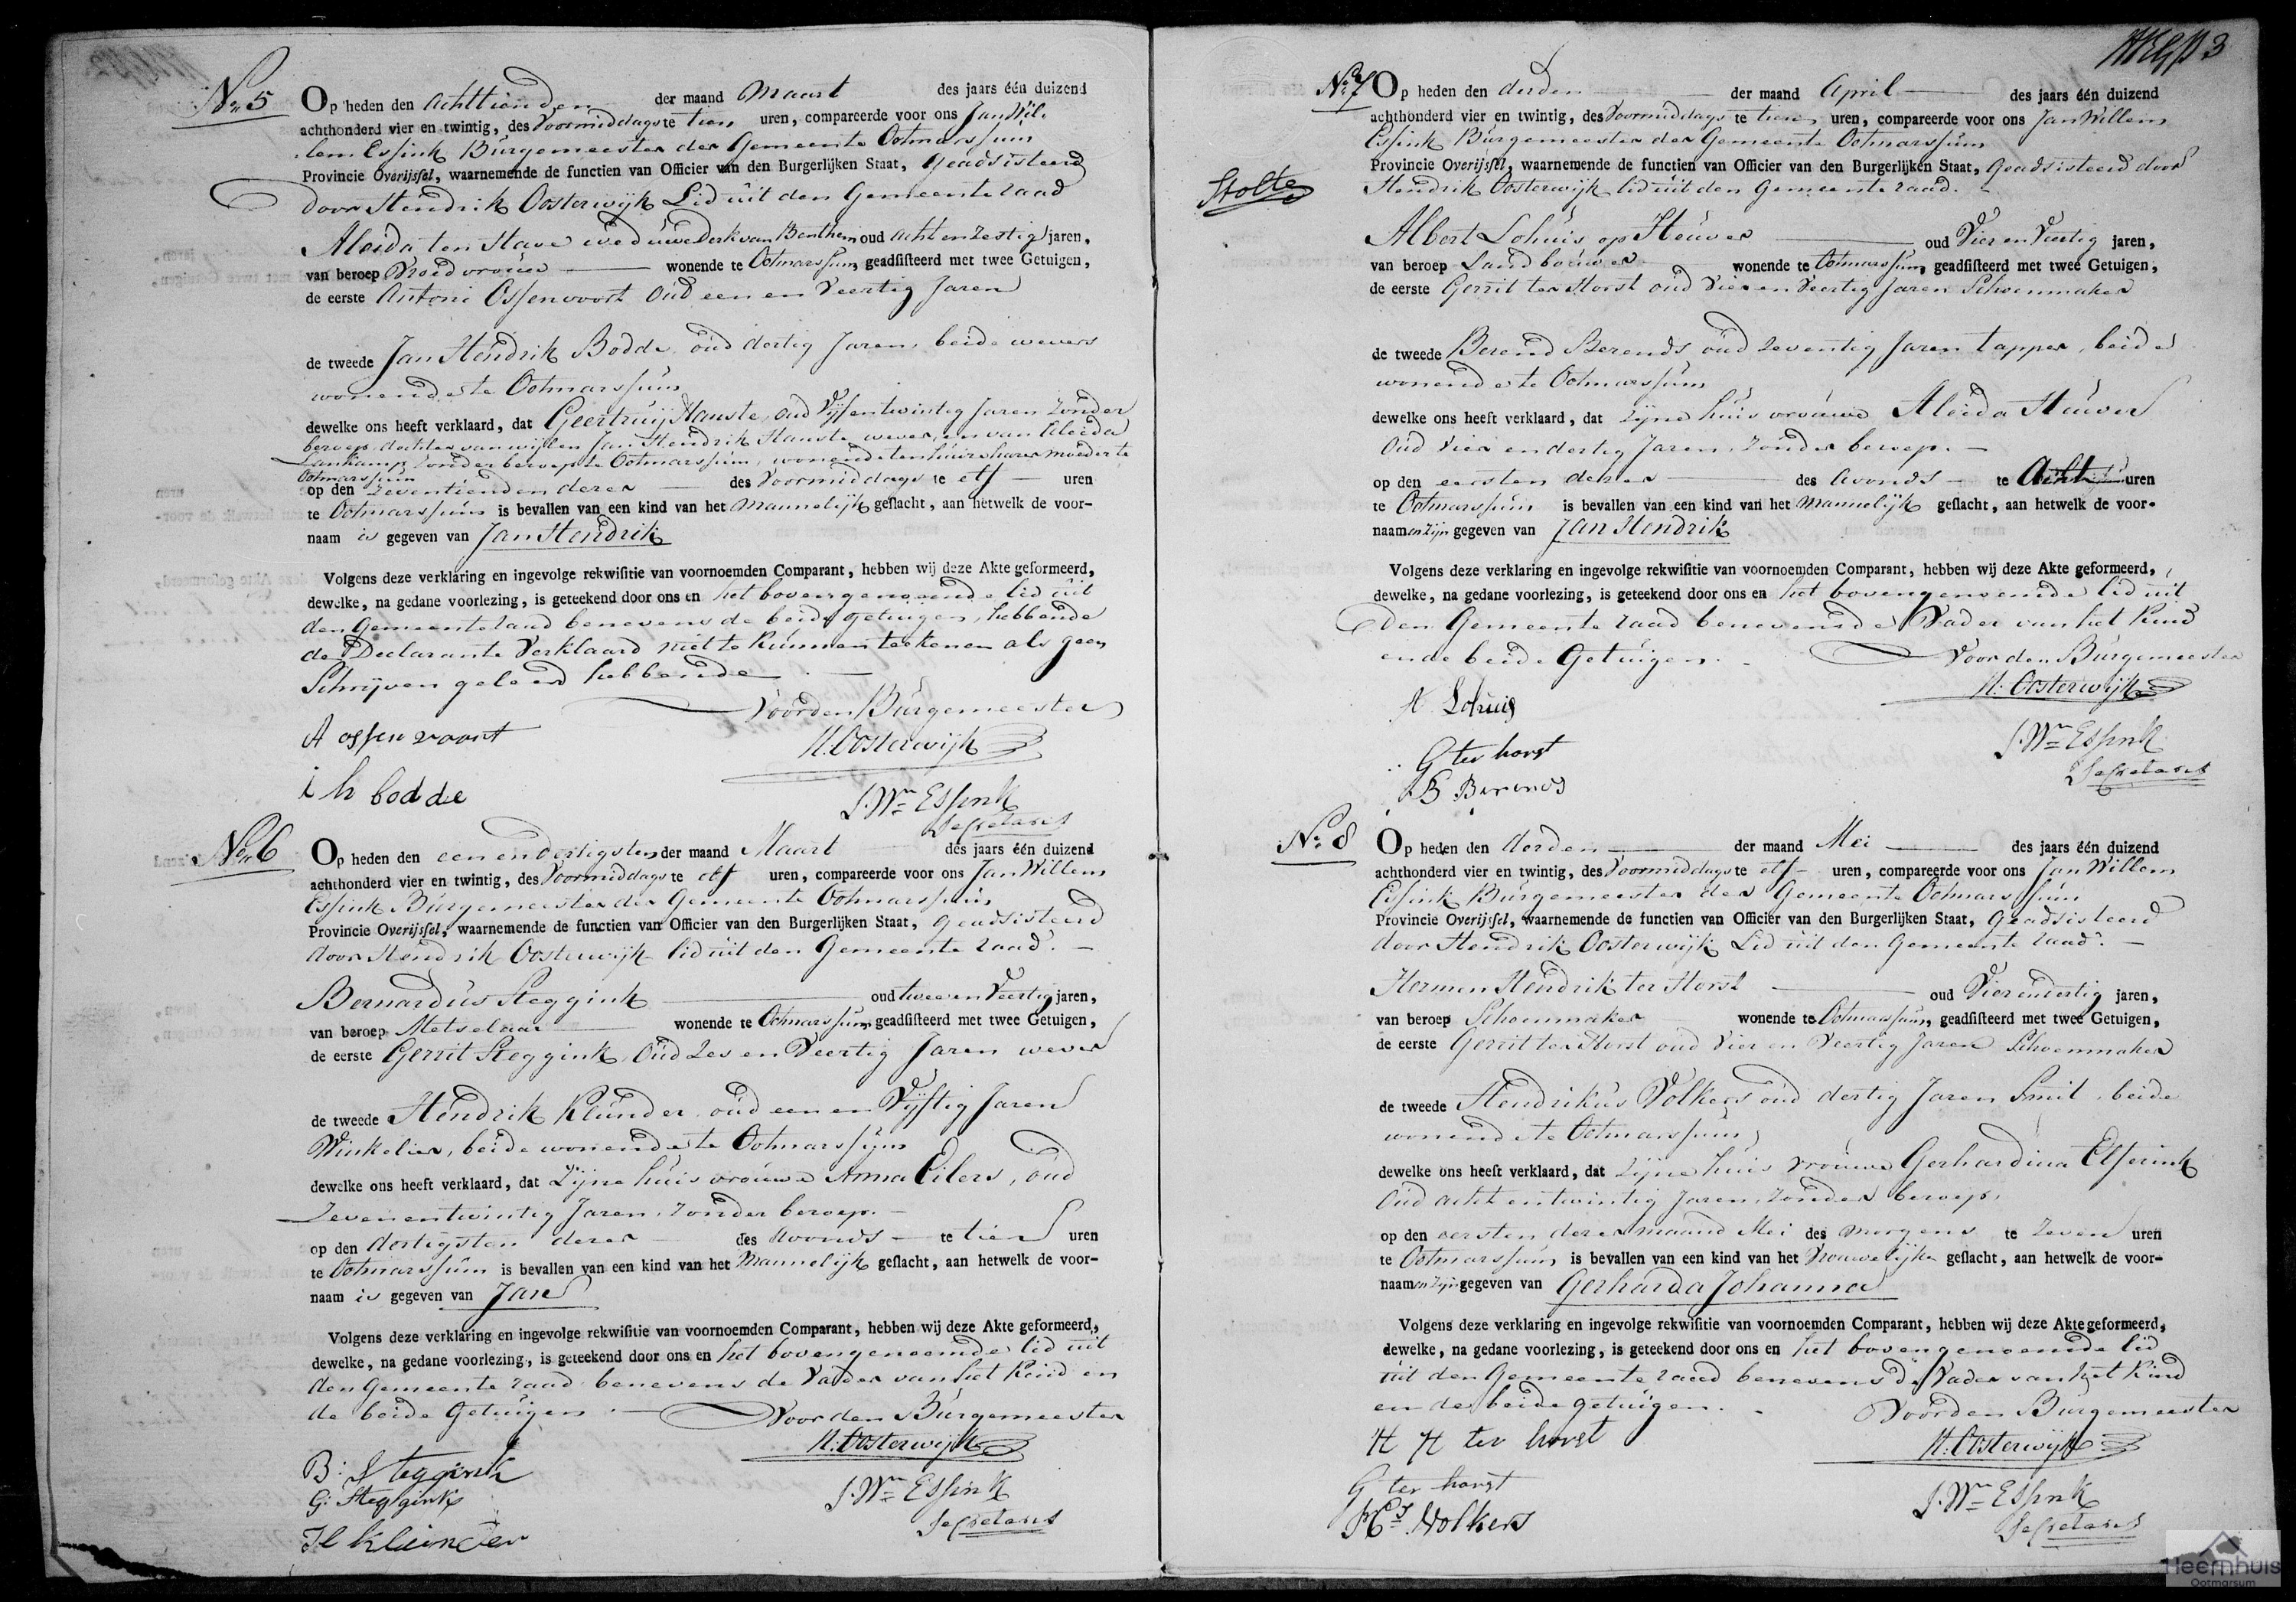 No 5
Op heden den Achttienden der maand Maart des jaars één duizend
achthonderd vier en twintig, des Voormiddags te tien uren, compareerde voor ons Jan Wil-
lem Essink Burgemeester der Gemeente Ootmarssum
Provincie Overijssel, waarnemende de functien van Officier van den Burgerlijken Staat, Geadsisteerd
door Hendrik Oosterwijk Lid uit den Gemeente raad
Aleida ten Have weduwe Derk van Benthem oud Acht en zestig jaren,
van beroep Vroedvrouw wonende te Ootmarssum, geadsisteerd met twee Getuigen,
de eerste Antoni Ossenvoort Oud een en Veertig Jaren
de tweede Jan Hendrik Bodde, oud dertig Jaren, beide wevers
wonende te Ootmarssum
dewelke ons heeft verklaard, dat Geertruij Hauste, oud Vijfentwintig Jaren zonder
beroep, dochter van wijlen Jan Hendrik Hauste wever, en van Aleida
Lankamp zonder beroep te Ootmarssum, wonende ten huize harer moeder te
Ootmarssum
op den Zeventienden dezer des Voormiddags te elf uren
te Ootmarssum is bevallen van een kind van het Mannelijk geslacht, aan hetwelk de voor-
naam is gegeven van Jan Hendrik
Volgens deze verklaring en ingevolge rekwisitie van voornoemden Comparant, hebben wij deze Akte geformeerd,
dewelke, na gedane voorlezing, is geteekend door ons en het bovengenoemde lid uit
den Gemeente raad benevens de beide getuigen, hebbende
de Declarante Verklaard niet te kunnen teekenen als geen
Schrijven geleerd hebbende
Voor den Burgemeester
A ossenvoort
H. Oosterwijk
i h bodde
J. Wm Essink
Secretaris
No 6
Op heden den een en dertigsten der maand Maart des jaars één duizend
achthonderd vier en twintig, des Voormiddags te elf uren, compareerde voor ons Jan Willem
Essink Burgemeester der Gemeente Ootmarssum
Provincie Overijssel, waarnemende de functien van Officier van den Burgerlijken Staat, Geadsisteerd
door Hendrik Oosterwijk lid uit den Gemeente raad.
Bernardus Steggink oud twee en Veertig jaren,
van beroep Metselaar wonende te Ootmarssum, geadsisteerd met twee Getuigen,
de eerste Gerrit Steggink, Oud Zes en Veertig Jaren wever
de tweede Hendrik Klunder oud een en Vijftig Jaren
Winkelier, beide wonende te Ootmarssum
dewelke ons heeft verklaard, dat Zijne huisvrouwe Anna Eilers, oud
Zevenentwintig Jaren, Zonder beroep.
op den dertigsten dezer des Avonds te tien uren
te Ootmarssum is bevallen van een kind van het Mannelijk geslacht, aan hetwelk de voor-
naam is gegeven van Jan
Volgens deze verklaring en ingevolge rekwisitie van voornoemden Comparant, hebben wij deze Akte geformeerd,
dewelke, na gedane voorlezing, is geteekend door ons en het bovengenoemde lid uit
den Gemeente raad benevens de Vader van het Kind en
de beide Getuigen.
Voor den Burgemeester
H. Oosterwijk
B: Steggink
G: Steggink
J. Wm Essink
Secretaris
H klunder
3
No 7
Op heden den derden der maand April des jaars één duizend
achthonderd vier en twintig, des Voormiddags te tien uren, compareerde voor ons Jan Willem
Essink Burgemeester der Gemeente Ootmarssum
Provincie Overijssel, waarnemende de functien van Officier van den Burgerlijken Staat, Geadsisteerd door
Stolte
Hendrik Oosterwijk lid uit den Gemeente raad.
Albert Lohuis op Heuver oud Vier en Veertig jaren,
van beroep Landbouwer wonende te Ootmarssum, geadsisteerd met twee Getuigen,
de eerste Gerrit ter Horst oud Vier en Veertig Jaren Schoenmaker
de tweede Berend Berends oud Zeventig Jaren tapper, beide
wonende te Ootmarssum
dewelke ons heeft verklaard, dat Zijne huisvrouwe Aleida Heuver
Oud Vier en dertig Jaren, Zonder beroep.
op den eersten dezer des Avonds te Acht uren
te Ootmarssum is bevallen van een kind van het Mannelijk geslacht, aan hetwelk de voor-
naamen zijn gegeven van Jan Hendrik
Volgens deze verklaring en ingevolge rekwisitie van voornoemden Comparant, hebben wij deze Akte geformeerd,
dewelke, na gedane voorlezing, is geteekend door ons en het bovengenoemde lid uit
den Gemeente raad benevens de Vader van het Kind
en de beide Getuigen.
Voor den Burgemeester
H. Oosterwijk
A Lohuis
G ter horst
J. Wm Essink
Secretaris
B Berends
No 8
Op heden den derden der maand Mei des jaars één duizend
achthonderd vier en twintig, des Voormiddags te elf uren, compareerde voor ons Jan Willem
Essink Burgemeester der Gemeente Ootmarssum
Provincie Overijssel, waarnemende de functien van Officier van den Burgerlijken Staat, Geadsisteerd
door Hendrik Oosterwijk Lid uit den Gemeente raad.
Hermen Hendrik ter Horst oud Vier en dertig jaren,
van beroep Schoenmaker wonende te Ootmarssum, geadsisteerd met twee Getuigen,
de eerste Gerrit ter Horst oud Vier en Veertig Jaren Schoenmaker
de tweede Hendrikus Volkers oud dertig Jaren Smit, beide
wonende te Ootmarssum
dewelke ons heeft verklaard, dat Zijne huisvrouwe Gerhardina Elferink
Oud acht en twintig Jaren, Zonder beroep,
op den eersten dezer maand Mei des morgens te Zeven uren
te Ootmarssum is bevallen van een kind van het Vrouwelijke geslacht, aan hetwelk de voor-
naamen zijn gegeven van Gerharda Johanna
Volgens deze verklaring en ingevolge rekwisitie van voornoemden Comparant, hebben wij deze Akte geformeerd,
dewelke, na gedane voorlezing, is geteekend door ons en het bovengenoemde lid
uit den Gemeente raad benevens de Vader van het Kind
en de beide getuigen.
Voor den Burgemeester
H H ter horst
H. Oosterwijk
G ter horst
Hs Volkers
J. Wm Essink
Secretaris
Heemhuis
Ootmarsum